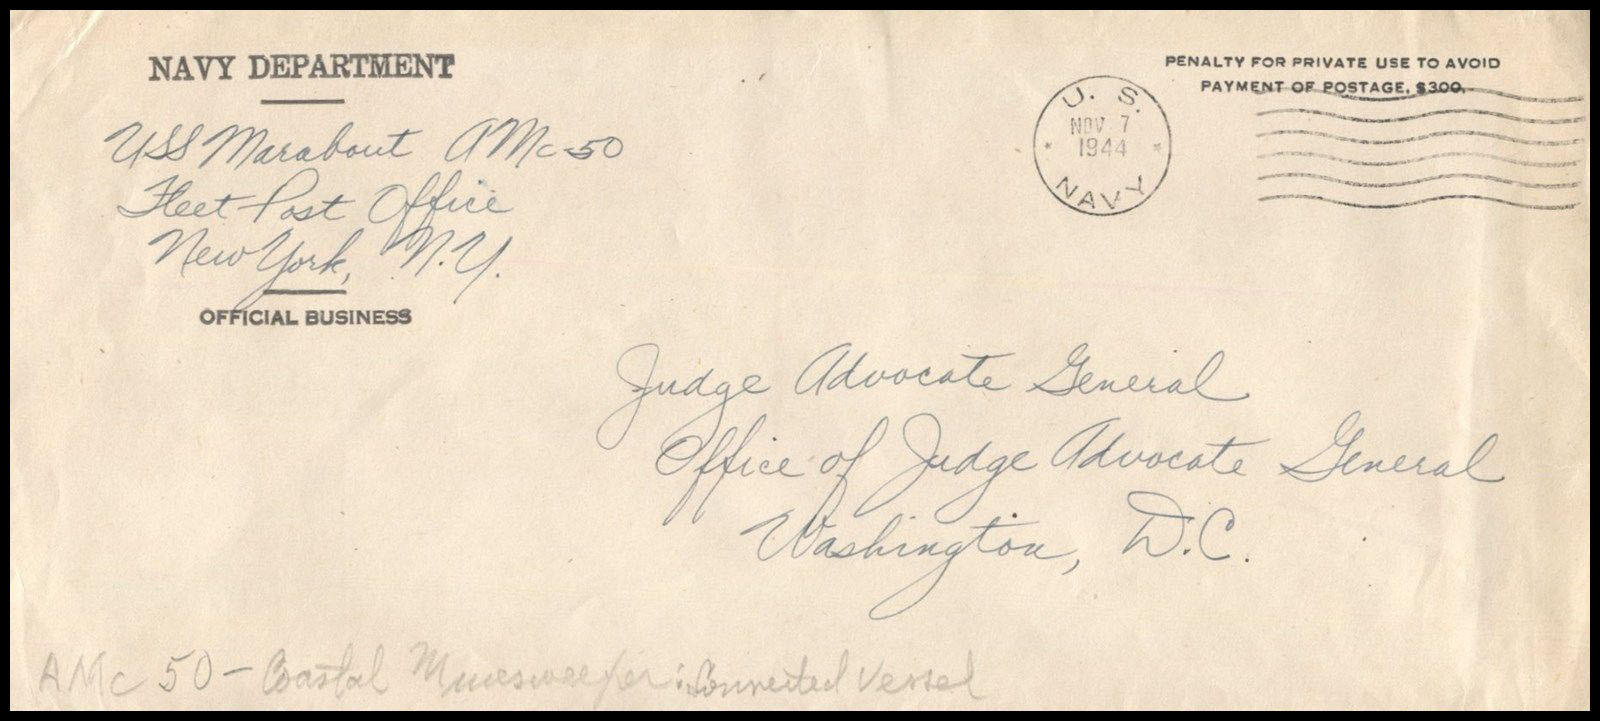 NAVY DEPARTMENT
USS Marabout AMc-50
Fleet Post Office
New York, N.Y.
OFFICIAL BUSINESS
U. S.
NOV 7
1944
NAVY
PENALTY FOR PRIVATE USE TO AVOID
PAYMENT OF POSTAGE, $300.
Judge Advocate General
Office of Judge Advocate General
Washington, D.C.
AMc 50 - Coastal Minesweeper: Converted Vessel